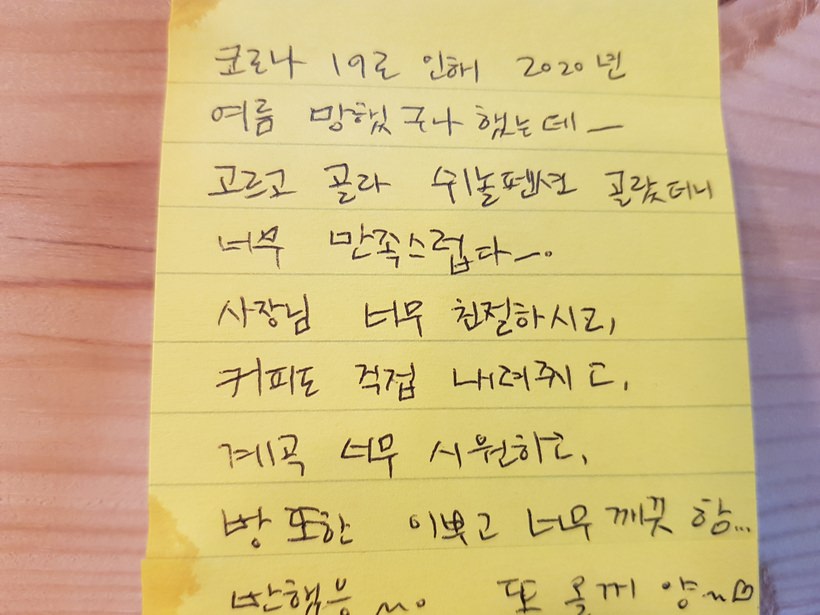 코로나 19로 인해 2020년
여름 망했구나 했는데ㅡ
고르고 골라 쉬놀펜션 골랐더니
너무 만족스럽다ㅡ.
사장님 너무 친절하시고,
커피도 직접 내려주시고,
계곡 너무 시원하고,
방 또한 이쁘고 너무 깨끗 함...
또 올께 양~♡